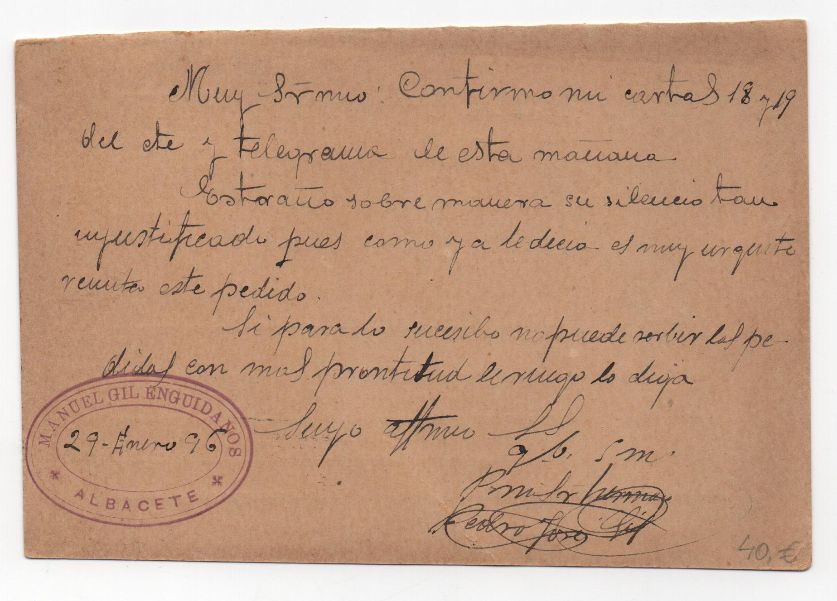 Muy Sr mio: Confirmo mi cartas 18 y 19
del cte y telegrama de esta mañana
Estraño sobre manera su silencio tan
injustificado pues como ya le decia es muy urgente
remita este pedido.
Si para lo sucesibo no puede serbir los pe-
didos con mas prontitud le ruego lo diga
Suyo affmo SS
q. b. s m.
Pedro José Gil
MANUEL GIL ENGUIDANOS
29-Enero 96
* ALBACETE *
40,€